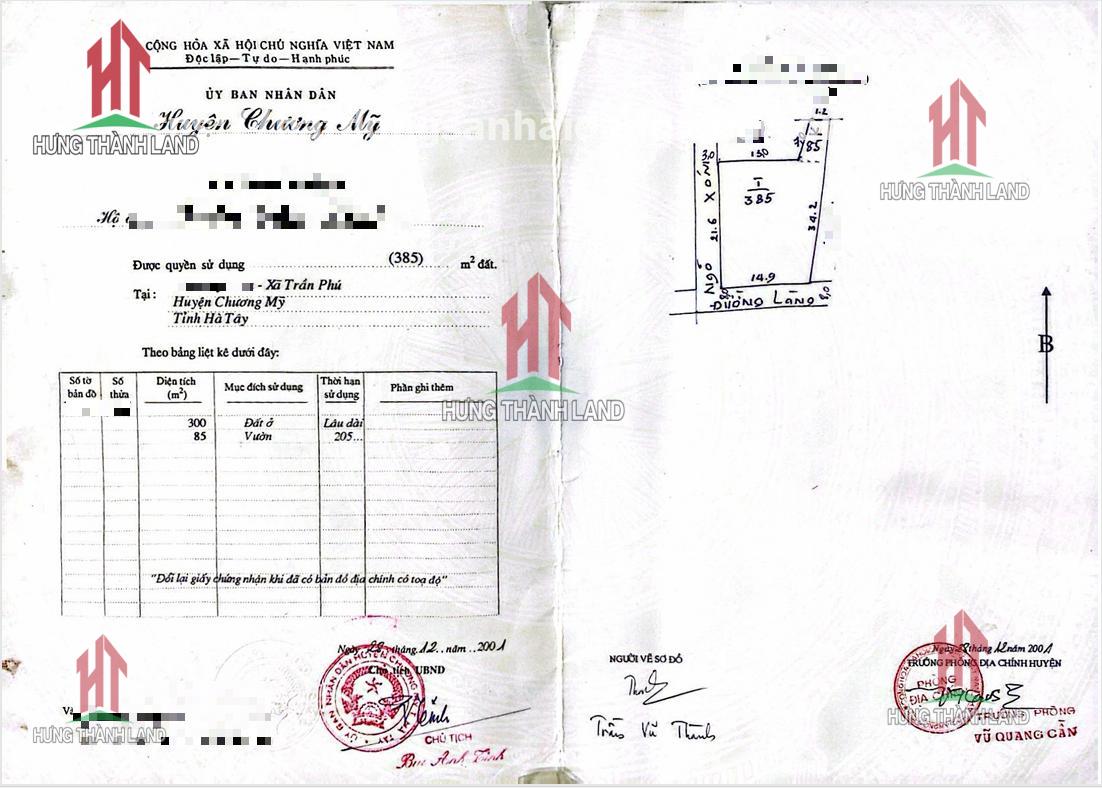 CỘNG HÒA XÃ HỘI CHỦ NGHĨA VIỆT NAM
Độc lập — Tự do — Hạnh phúc
ỦY BAN NHÂN DÂN
Huyện Chương Mỹ
HT
HƯNG THÀNH LAND
Hộ
Được quyền sử dụng (385) m² đất.
Tại : - Xã Trần Phú
Huyện Chương Mỹ
Tỉnh Hà Tây
Theo bảng liệt kê dưới đây:
Số tờ bản đồ Số thửa Diện tích (m²) Mục đích sử dụng Thời hạn sử dụng Phần ghi thêm
300 Đất ở Lâu dài
85 Vườn 205...
"Đổi lại giấy chứng nhận khi đã có bản đồ địa chính có toạ độ"
Ngày tháng 12 năm 2001
Chủ tịch UBND
CHỦ TỊCH
HT
HƯNG THÀNH LAND
HT
HƯNG THÀNH LAND
1.2
85
3,0
13,0
I
385
NGÕ XÓM
21.6
34.2
14.9
8,0
ĐƯỜNG LÀNG
8,0
HT
HƯNG THÀNH LAND
B
NGƯỜI VẼ SƠ ĐỒ
Trần Vũ Thành
Ngày 28 tháng 12 năm 2001
TRƯỞNG PHÒNG ĐỊA CHÍNH HUYỆN
PHÒNG
ĐỊA CHÍNH
TRƯỞNG PHÒNG
VŨ QUANG CẦN
HT
HƯNG THÀNH LAND